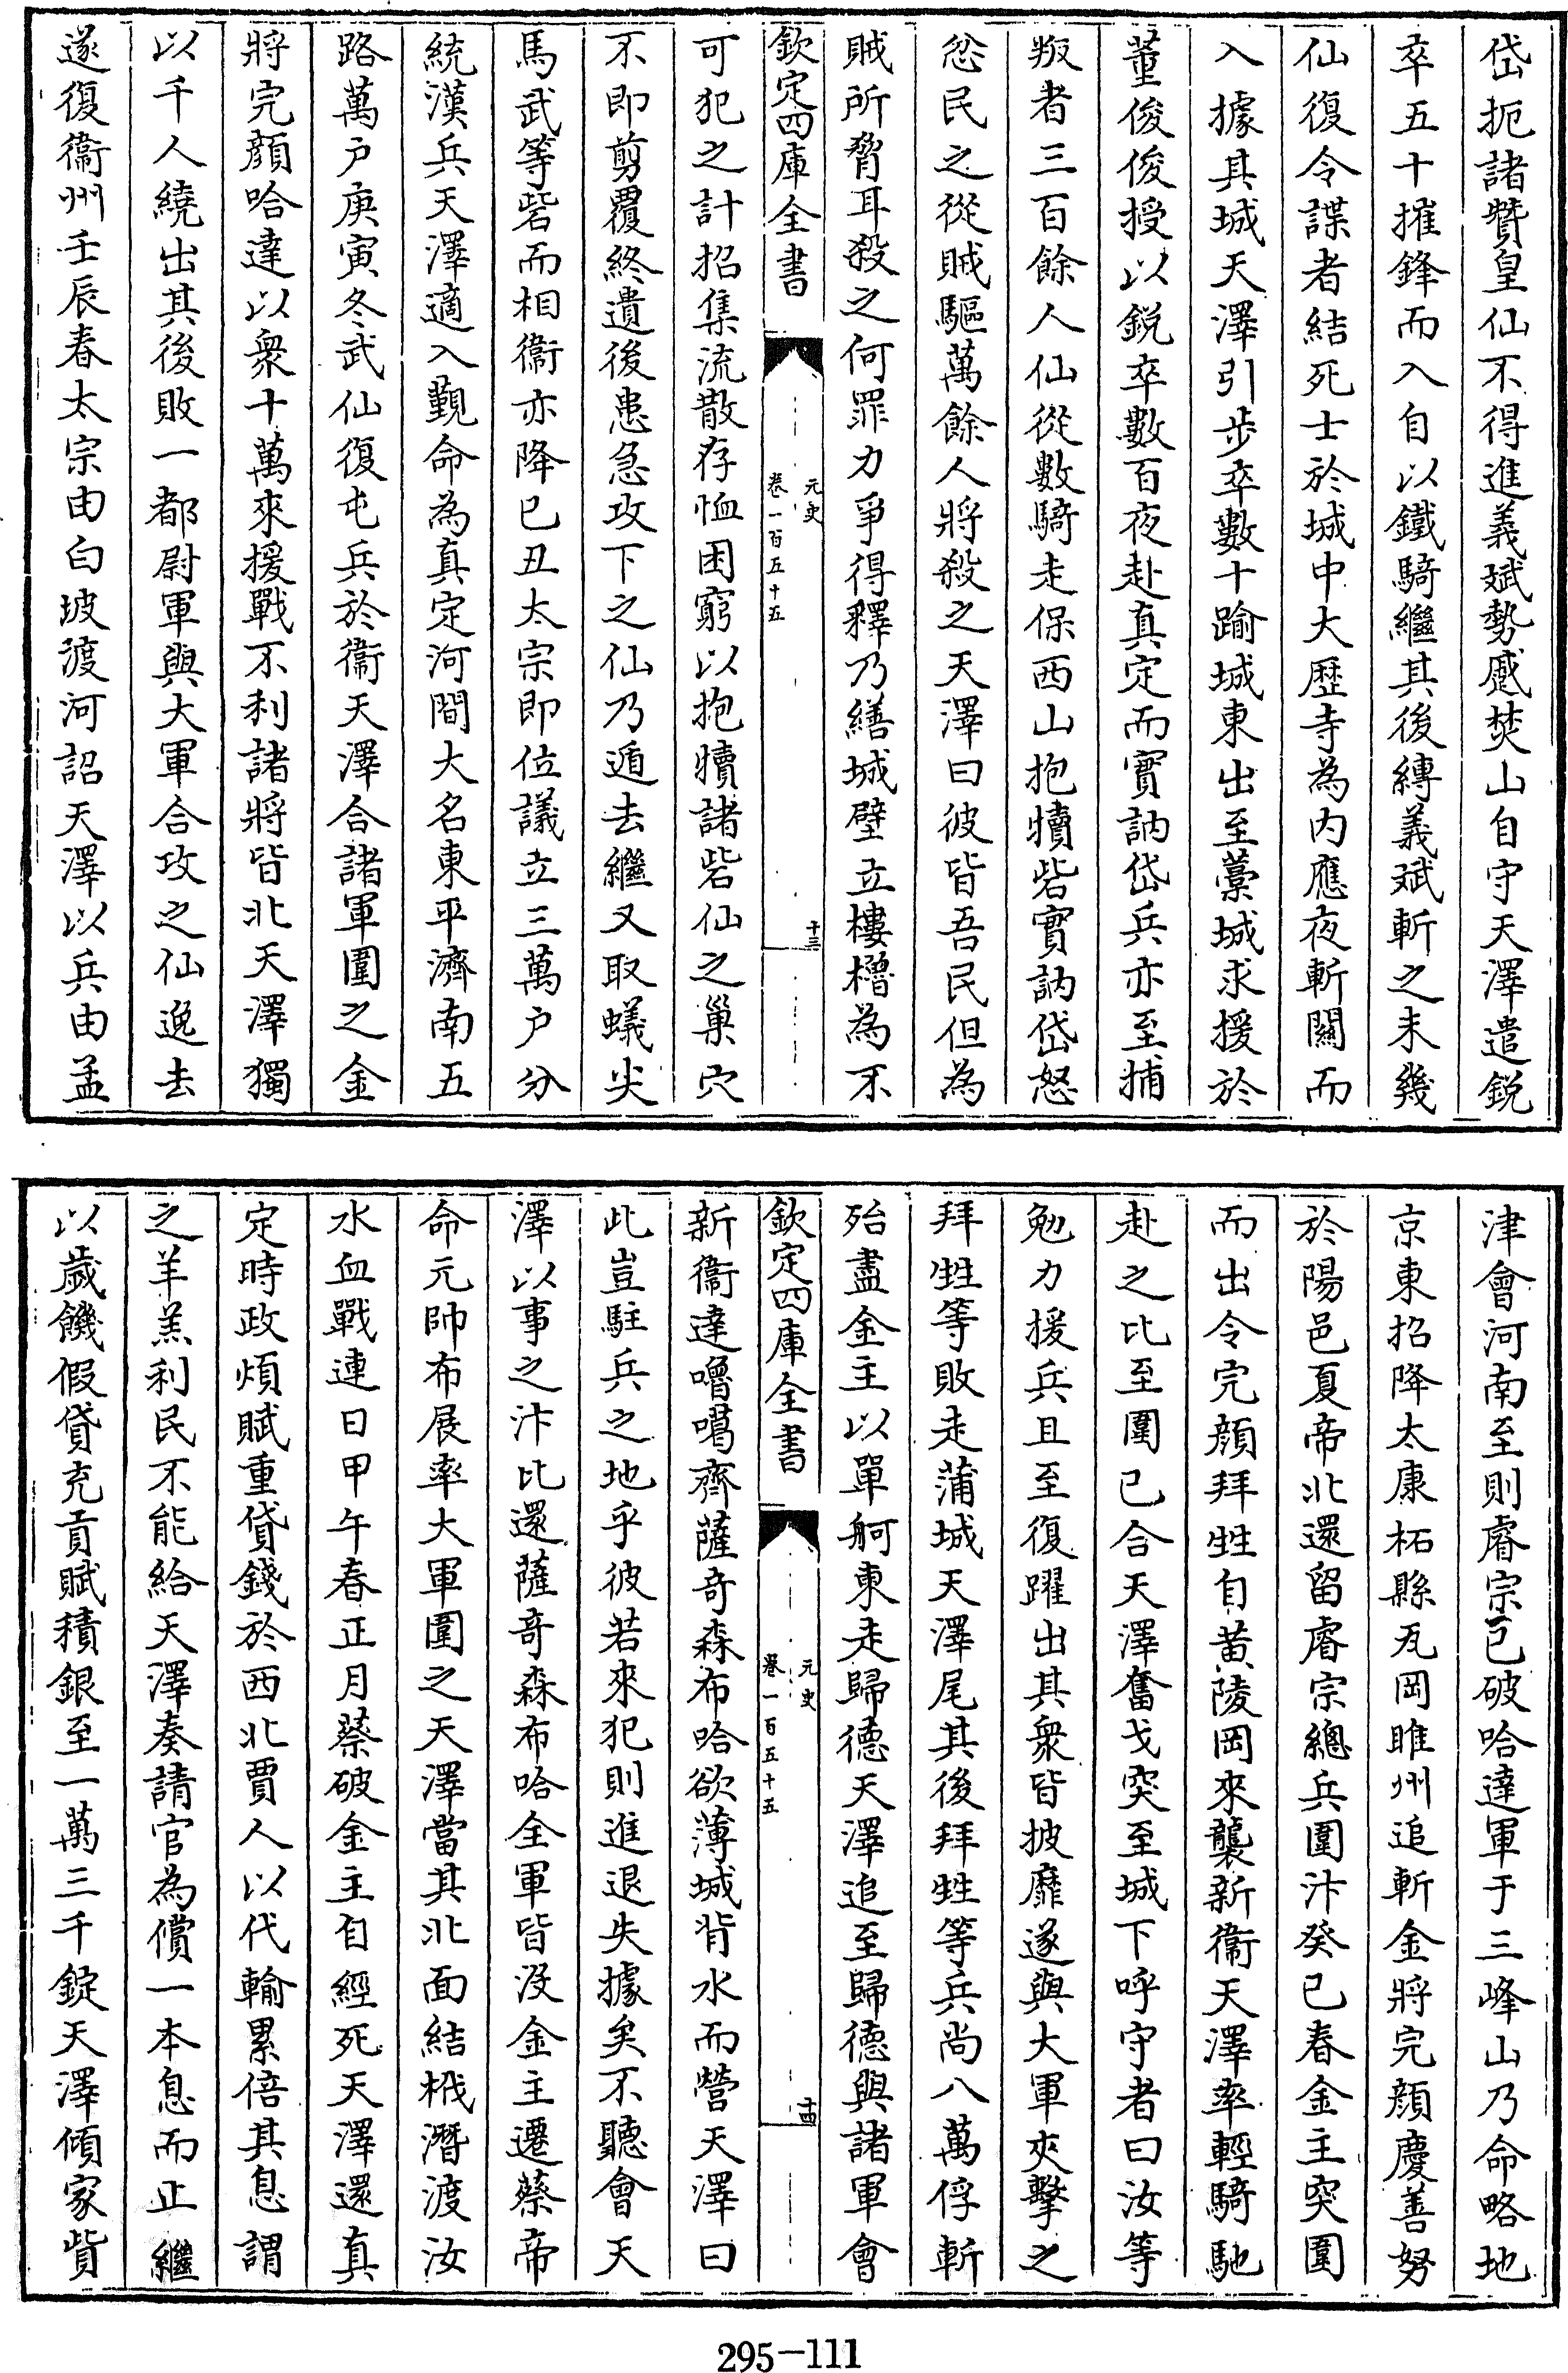 岱扼諸贊皇仙不得進義斌勢蹙焚山自守天澤遣銳
卒五十摧鋒而入自以鐵騎繼其後縛義斌斬之未幾
仙復令諜者結死士於城中大歷寺為内應夜斬關而
入據其城天澤引步卒數十踰城東出至藁城求援於
董俊俊授以銳卒數百夜赴真定而實訥岱兵亦至捕
叛者三百餘人仙從數騎走保西山抱犢砦實訥岱怒
忿民之從賊驅萬餘人將殺之天澤曰彼皆吾民但為
賊所脅耳殺之何罪力爭得釋乃繕城壁立樓櫓為不
欽定四庫全書
元史
卷一百五十五
十三
可犯之計招集流散存恤困窮以抱犢諸砦仙之巢穴
不即剪覆終遺後患急攻下之仙乃遁去繼又取蟻尖
馬武等砦而相衞亦降已丑太宗即位議立三萬户分
統漢兵天澤適入覲命為真定河間大名東平濟南五
路萬户庚寅冬武仙復屯兵於衞天澤合諸軍圍之金
將完顔哈達以衆十萬來援戰不利諸將皆北天澤獨
以千人繞出其後敗一都尉軍與大軍合攻之仙逸去
遂復衞州壬辰春太宗由白坡渡河詔天澤以兵由孟
津會河南至則睿宗已破哈達軍于三峰山乃命略地
京東招降太康柘縣瓦岡睢州追斬金將完顔慶善努
於陽邑夏帝北還留睿宗總兵圍汴癸已春金主突圍
而出令完顔拜甡自黄陵岡來襲新衞天澤率輕騎馳
赴之比至圍已合天澤奮戈突至城下呼守者曰汝等
勉力援兵且至復躍出其衆皆披靡遂與大軍夾擊之
拜甡等敗走蒲城天澤尾其後拜甡等兵尚八萬俘斬
殆盡金主以單舸東走歸德天澤追至歸德與諸軍會
欽定四庫全書
元史
卷一百五十五
十四
新衞達嚕噶齊薩奇森布哈欲薄城背水而營天澤曰
此豈駐兵之地乎彼若來犯則進退失據矣不聽會天
澤以事之汴比還薩奇森布哈全軍皆没金主遷蔡帝
命元帥布展率大軍圍之天澤當其北面結栰潛渡汝
水血戰連日甲午春正月蔡破金主自經死天澤還真
定時政煩賦重貸錢於西北賈人以代輸累倍其息謂
之羊羔利民不能給天澤奏請官為償一本息而止繼
以歲饑假貸充貢賦積銀至一萬三千錠天澤傾家貲
295—111